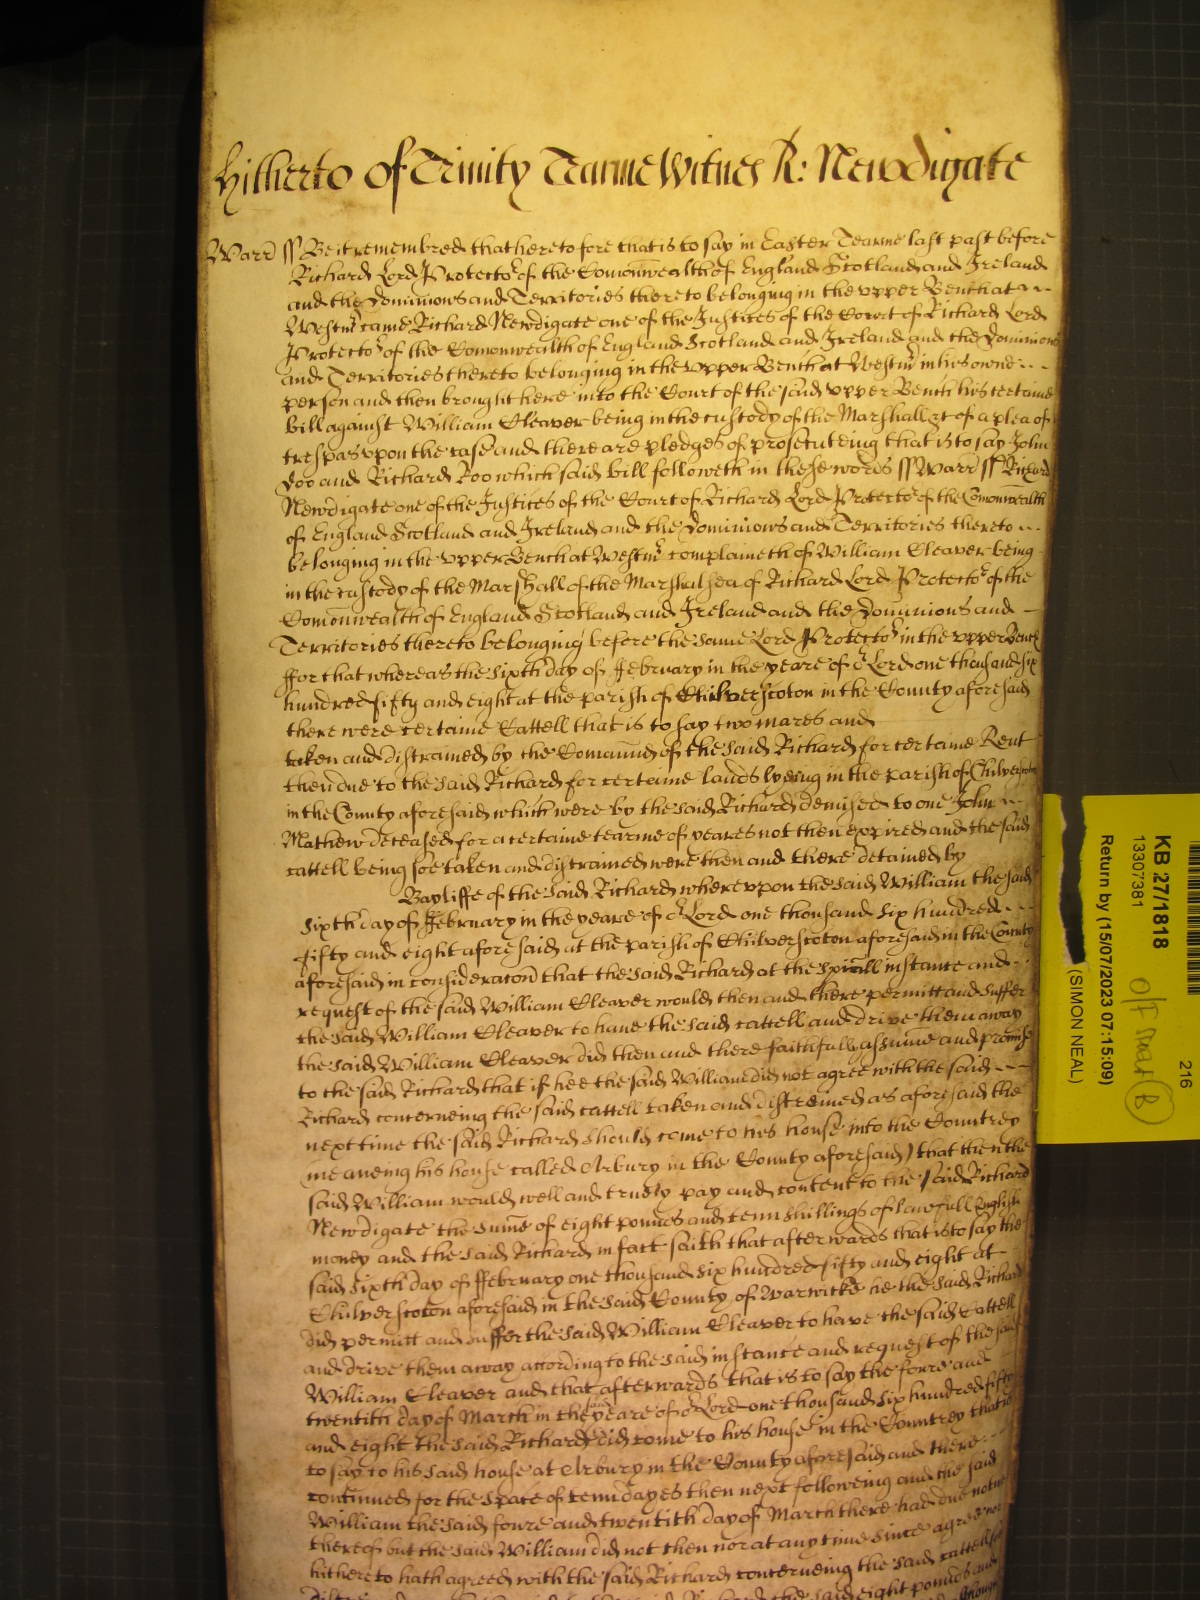 Hitherto of Trinity Tearme Witnes R: Newdigate
Warr ss Be it remembred that heretofore that is to say in Easter Tearme last past before
Richard Lord Protector of the Comonwealth of England Scotland and Ireland
and the Dominions and Territories thereto belonging in the upper Bench at
Westmr came Richard Newdigate one of the Justices of the Court of Richard Lord
Protector of the Comonwealth of England Scotland and Ireland and the Dominions
and Territories thereto belonging in the upper Bench at Westmr in his owne
person and then brought here into the Court of the said upper Bench his certaine
bill against William Cleaver being in the custody of the Marshall &c of a plea of
trespas upon the case and there are pledges of prosecuteing that is to say John
Doo and Richard Roo which said bill followeth in these words ss Warr ss Richard
Newdigate one of the Justices of the Court of Richard Lord Protector of the Comonwealth
of England Scotland and Ireland and the Dominions and Territories thereto
belonging in the upper Bench at Westmr complaineth of William Cleaver being
in the custody of the Marshall of the Marshalsea of Richard Lord Protector of the
Comonwealth of England Scotland and Ireland and the Dominions and
Territories thereto belonging before the same Lord Protector in the upper Bench
ffor that whereas the sixth day of ffebruary in the yeare of or Lord one thousand six
hundred fifty and eight at the parish of Chilverscoton in the County aforesaid
there were certaine Cattell that is to say two mares and
taken and distrained by the Comaund of the said Richard for certaine Rent
then due to the said Richard for certaine lands lyeing in the parish of Chilverscoton
in the County aforesaid which were by the said Richard demised to one John
Mathew deceased for a certaine tearme of yeares not then expired and the said
cattell being soe taken and distrained were then and there detained by
Bayliffe of the said Richard whereupon the said William the said
sixth day of ffebruary in the yeare of or Lord one thousand six hundred
fifty and eight aforesaid at the parish of Chilverscoton aforesaid in the County
aforesaid in consideracon that the said Richard at the spiall instance and
request of the said William Cleaver would then and there permitt and suffer
the said William Cleaver to have the said cattell and drive them away
the said William Cleaver did then and there faithfully assume and promise
to the said Richard that if hee the said William did not agree with the said
Richard concerneing the said cattell taken and distreined as aforesaid the
next time the said Richard should come to his house into the Countrey
(meaneing his house called Arbury in the County aforesaid) that then the
said William would well and truely pay and content to the said Richard
Newdigate the sume of eight pounds and tenn shillings of lawfull English
money and the said Richard in fact saith that afterwards that is to say the
said sixth day of ffebruary one thousand six hundred fifty and eight at
Chilverscoton aforesaid in the said County of Warwicke he the said Richard
did permitt and suffer the said William Cleaver to have the said Cattell
and drive them away according to the said instance and request of the said
William Cleaver and that afterwards that is to say the foure and
twentith day of March in the said yeare of or Lord one thousand six hundred fifty
and eight the said Richard did come to his house in the Countrey that is
to say to his said house at Arbury in the County aforesaid and there
continued for the space of tenn dayes then next followeing and the said
William the said foure and twentith day of March there had due notice
thereof but the said William did not then nor at any time since agree nor
hitherto hath agreed with the said Richard concerneing the said cattell
said eight pounds and
KB 27/1818
13307381
Return by (15/07/2023 07:15:09)
(SIMON NEAL)
216
B